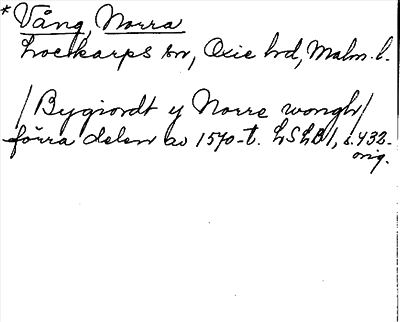 * Vång, Norra
Lockarps sn, Oxie hd, Malm. l.
/Bygiordt y Norre wongh/
förra delen av 1570-t. LSLB 1, s. 432.
orig.